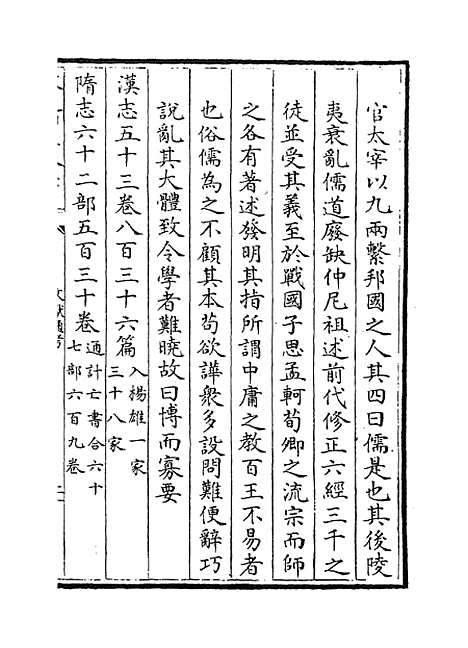 官太宰以九兩繫邦國之人其四曰儒是也其後陵
夷衰亂儒道廢缺仲尼祖述前代修正六經三千之
徒並受其義至於戰國子思孟軻荀卿之流宗而師
之各有著述發明其指所謂中庸之教百王不易者
也俗儒為之不顧其本苟欲譁衆多設問難便辭巧
說亂其大體致令學者難曉故曰博而寡要
漢志五十三卷八百三十六篇入楊雄一家
三十八家
隋志六十二部五百三十卷通計亡書合六十
七部六百九卷
文獻通考
二